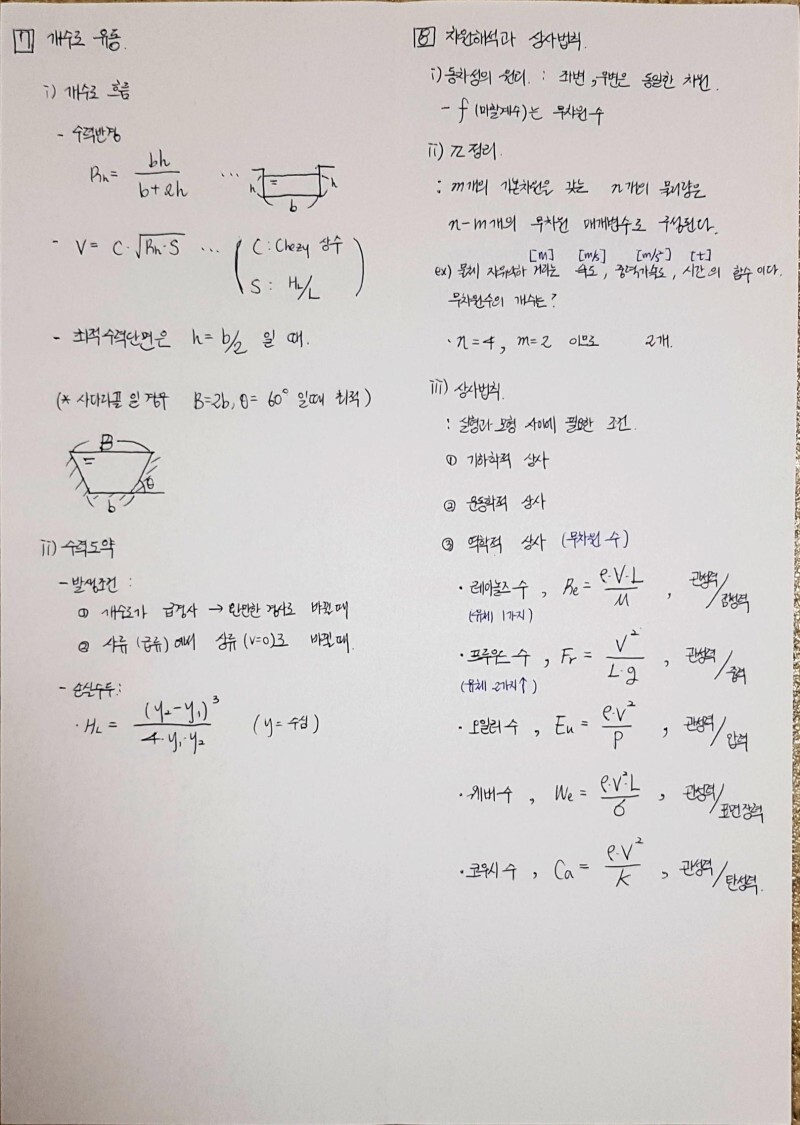 7 개수로 유동.
i) 개수로 흐름
- 수력반경
Rh = bh / b+2h ...
h h
b
- V = C·√Rh·S ... ( C : Chezy 상수
S : HL/L )
- 최적수력단면은 h = b/2 일 때.
(* 사다리꼴 일 경우 B=2b, θ = 60° 일때 최적)
B
θ
b
ii) 수력도약
- 발생조건 :
① 개수로가 급경사 → 완만한 경사로 바뀔 때
② 사류 (급류) 에서 상류 (V=0)로 바뀔 때.
- 손실수두 :
· HL = (y2-y1)³ / 4·y1·y2 (y = 수심)
8 차원해석과 상사법칙.
i) 동차성의 원리. : 좌변, 우변은 동일한 차원.
- f (마찰계수)는 무차원수
ii) π 정리.
: m개의 기본차원을 갖는 n개의 물리량은
n-m 개의 무차원 매개변수로 구성된다.
[m] [m/s] [m/s²] [t]
ex) 물체 자유낙하 거리는 속도, 중력가속도, 시간의 함수이다.
무차원수의 개수는?
· n=4, m=2 이므로 2개.
iii) 상사법칙.
: 실형과 모형 사이에 필요한 조건.
① 기하학적 상사
② 운동학적 상사
③ 역학적 상사 (무차원 수)
· 레이놀즈 수, Re = ρ·V·L / μ, 관성력/점성력
(유체 1가지)
· 프루우드 수, Fr = V² / L·g, 관성력/중력
(유체 2가지↑)
· 오일러 수, Eu = ρ·V² / P, 관성력/압력
· 웨버 수, We = ρ·V²·L / σ, 관성력/표면장력
· 코우시 수, Ca = ρ·V² / K, 관성력/탄성력.